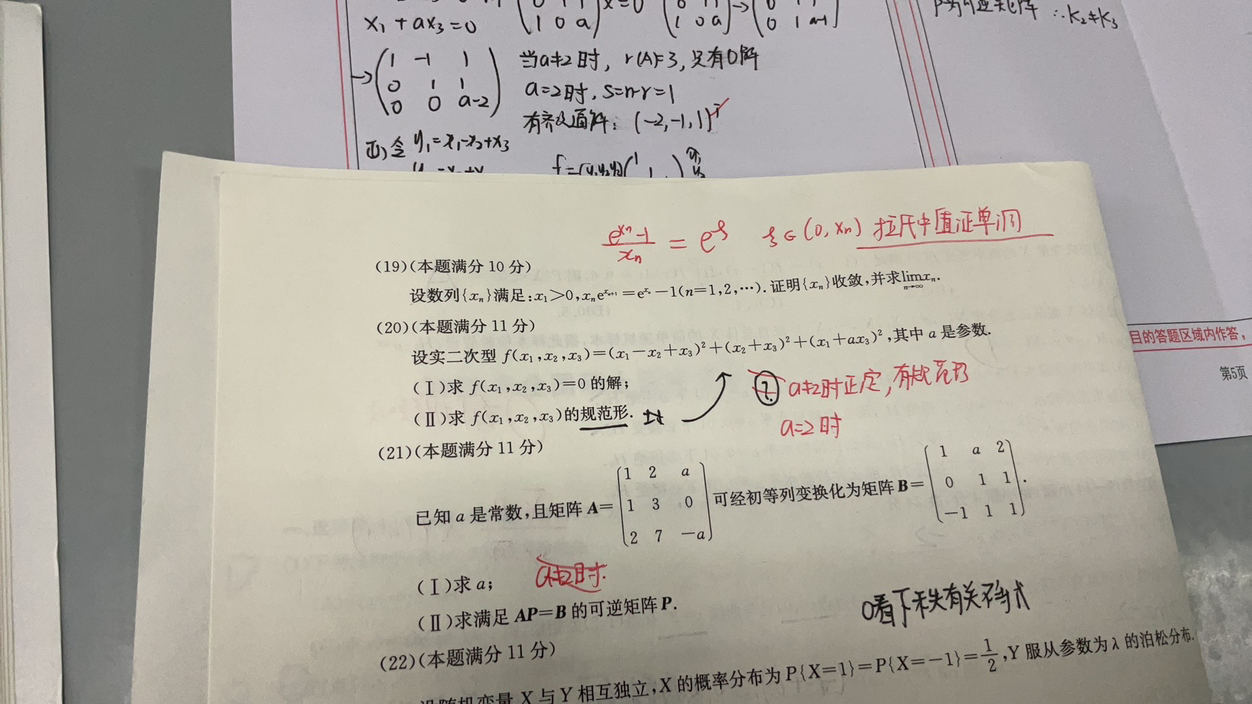 x₁+ax₃=0
1 0 a → 0 1 a-1
→ (1 -1 1
0 1 1
0 0 a-2)
当a≠2时, r(A)=3, 只有0解
a=2时, s=n-r=1
有齐次通解: (-2,-1,1)ᵀ
(2)令 y₁=x₁-x₂+x₃
∴k₂≠k₃
(e^{xₙ}-1)/xₙ = e^ξ ξ∈(0,xₙ) 拉氏中值证单调
(19)(本题满分 10 分)
设数列{xₙ}满足:x₁>0,xₙe^{xₙ₊₁}=e^{xₙ}-1(n=1,2,…).证明{xₙ}收敛,并求lim_{n→∞}xₙ.
(20)(本题满分 11 分)
设实二次型 f(x₁,x₂,x₃)=(x₁-x₂+x₃)²+(x₂+x₃)²+(x₁+ax₃)²,其中 a 是参数.
(Ⅰ)求 f(x₁,x₂,x₃)=0 的解;
(Ⅱ)求 f(x₁,x₂,x₃)的规范形.
? a≠2时正定,有规范形
a=2时
(21)(本题满分 11 分)
已知 a 是常数,且矩阵 A=(1 2 a
1 3 0
2 7 -a)可经初等列变换化为矩阵 B=(1 a 2
0 1 1
-1 1 1).
(Ⅰ)求 a;
a≠2时.
(Ⅱ)求满足 AP=B 的可逆矩阵 P.
看下秩有关不等式
(22)(本题满分 11 分)
设随机变量 X 与 Y 相互独立,X 的概率分布为 P{X=1}=P{X=-1}=1/2,Y 服从参数为 λ 的泊松分布.
目的答题区域内作答,
第5页